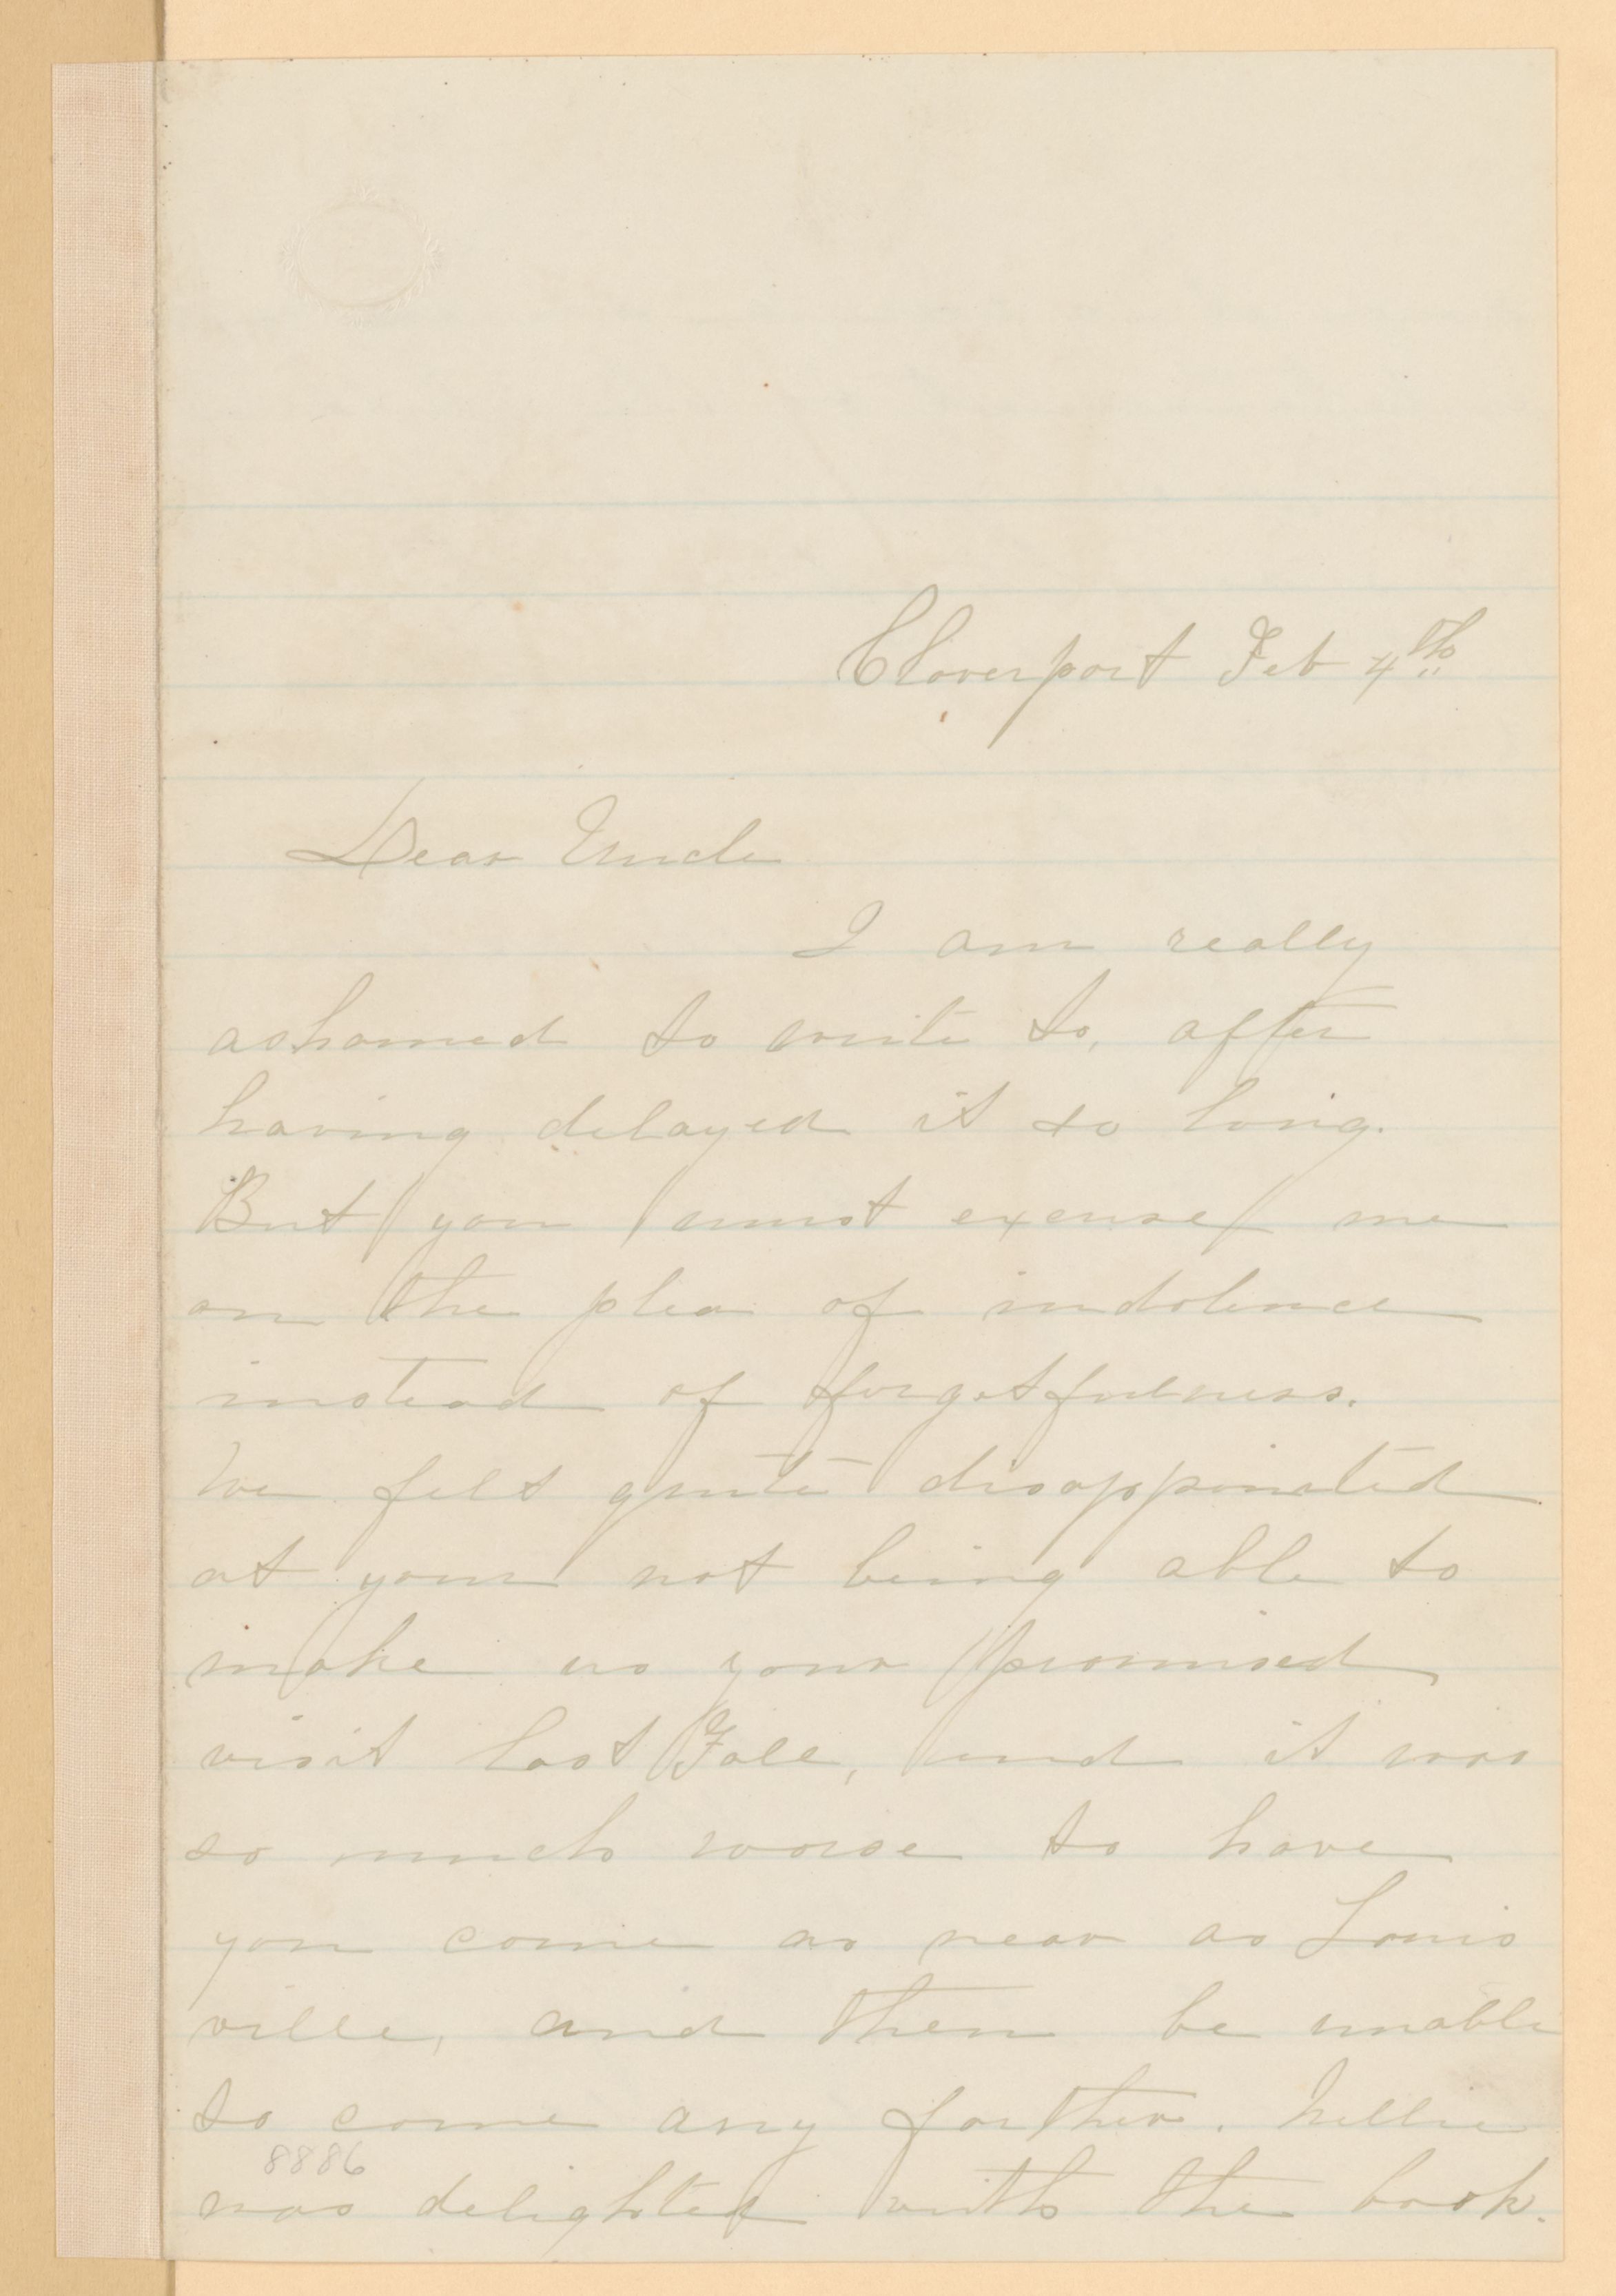 Cloverport Feb 4th
Dear Uncle
I am really
ashamed to write to, after
having delayed it so long.
But you must excuse me
on the plea of indolence
instead of forgetfulness.
We felt quite disappointed
at your not being able to
make us your promised
visit last Fall, and it was
so much worse to have
you come as near as Louis
ville, and then be unable
to come any farther. Nellie
8886
was delighted with the book.